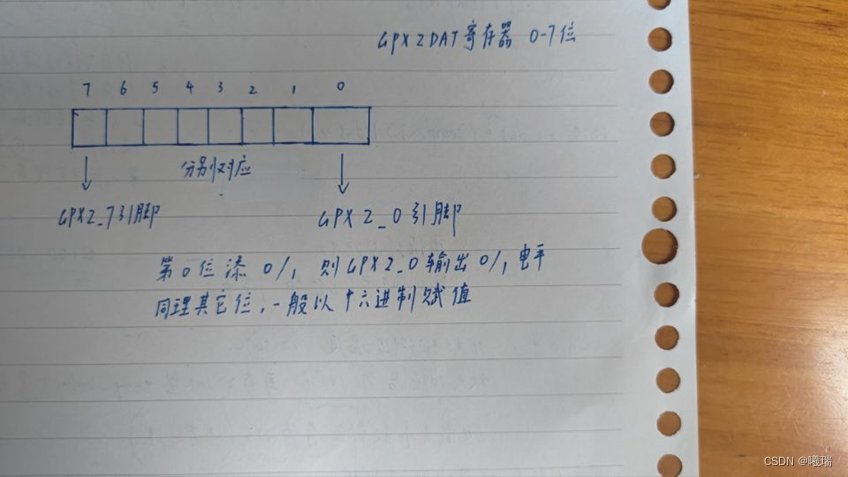 GPX2DAT寄存器 0-7位
7 6 5 4 3 2 1 0
分别对应
GPX2_7引脚 GPX2_0引脚
第0位添0/1, 则GPX2_0输出0/1电平
同理其它位，一般以十六进制赋值
CSDN @曦瑞